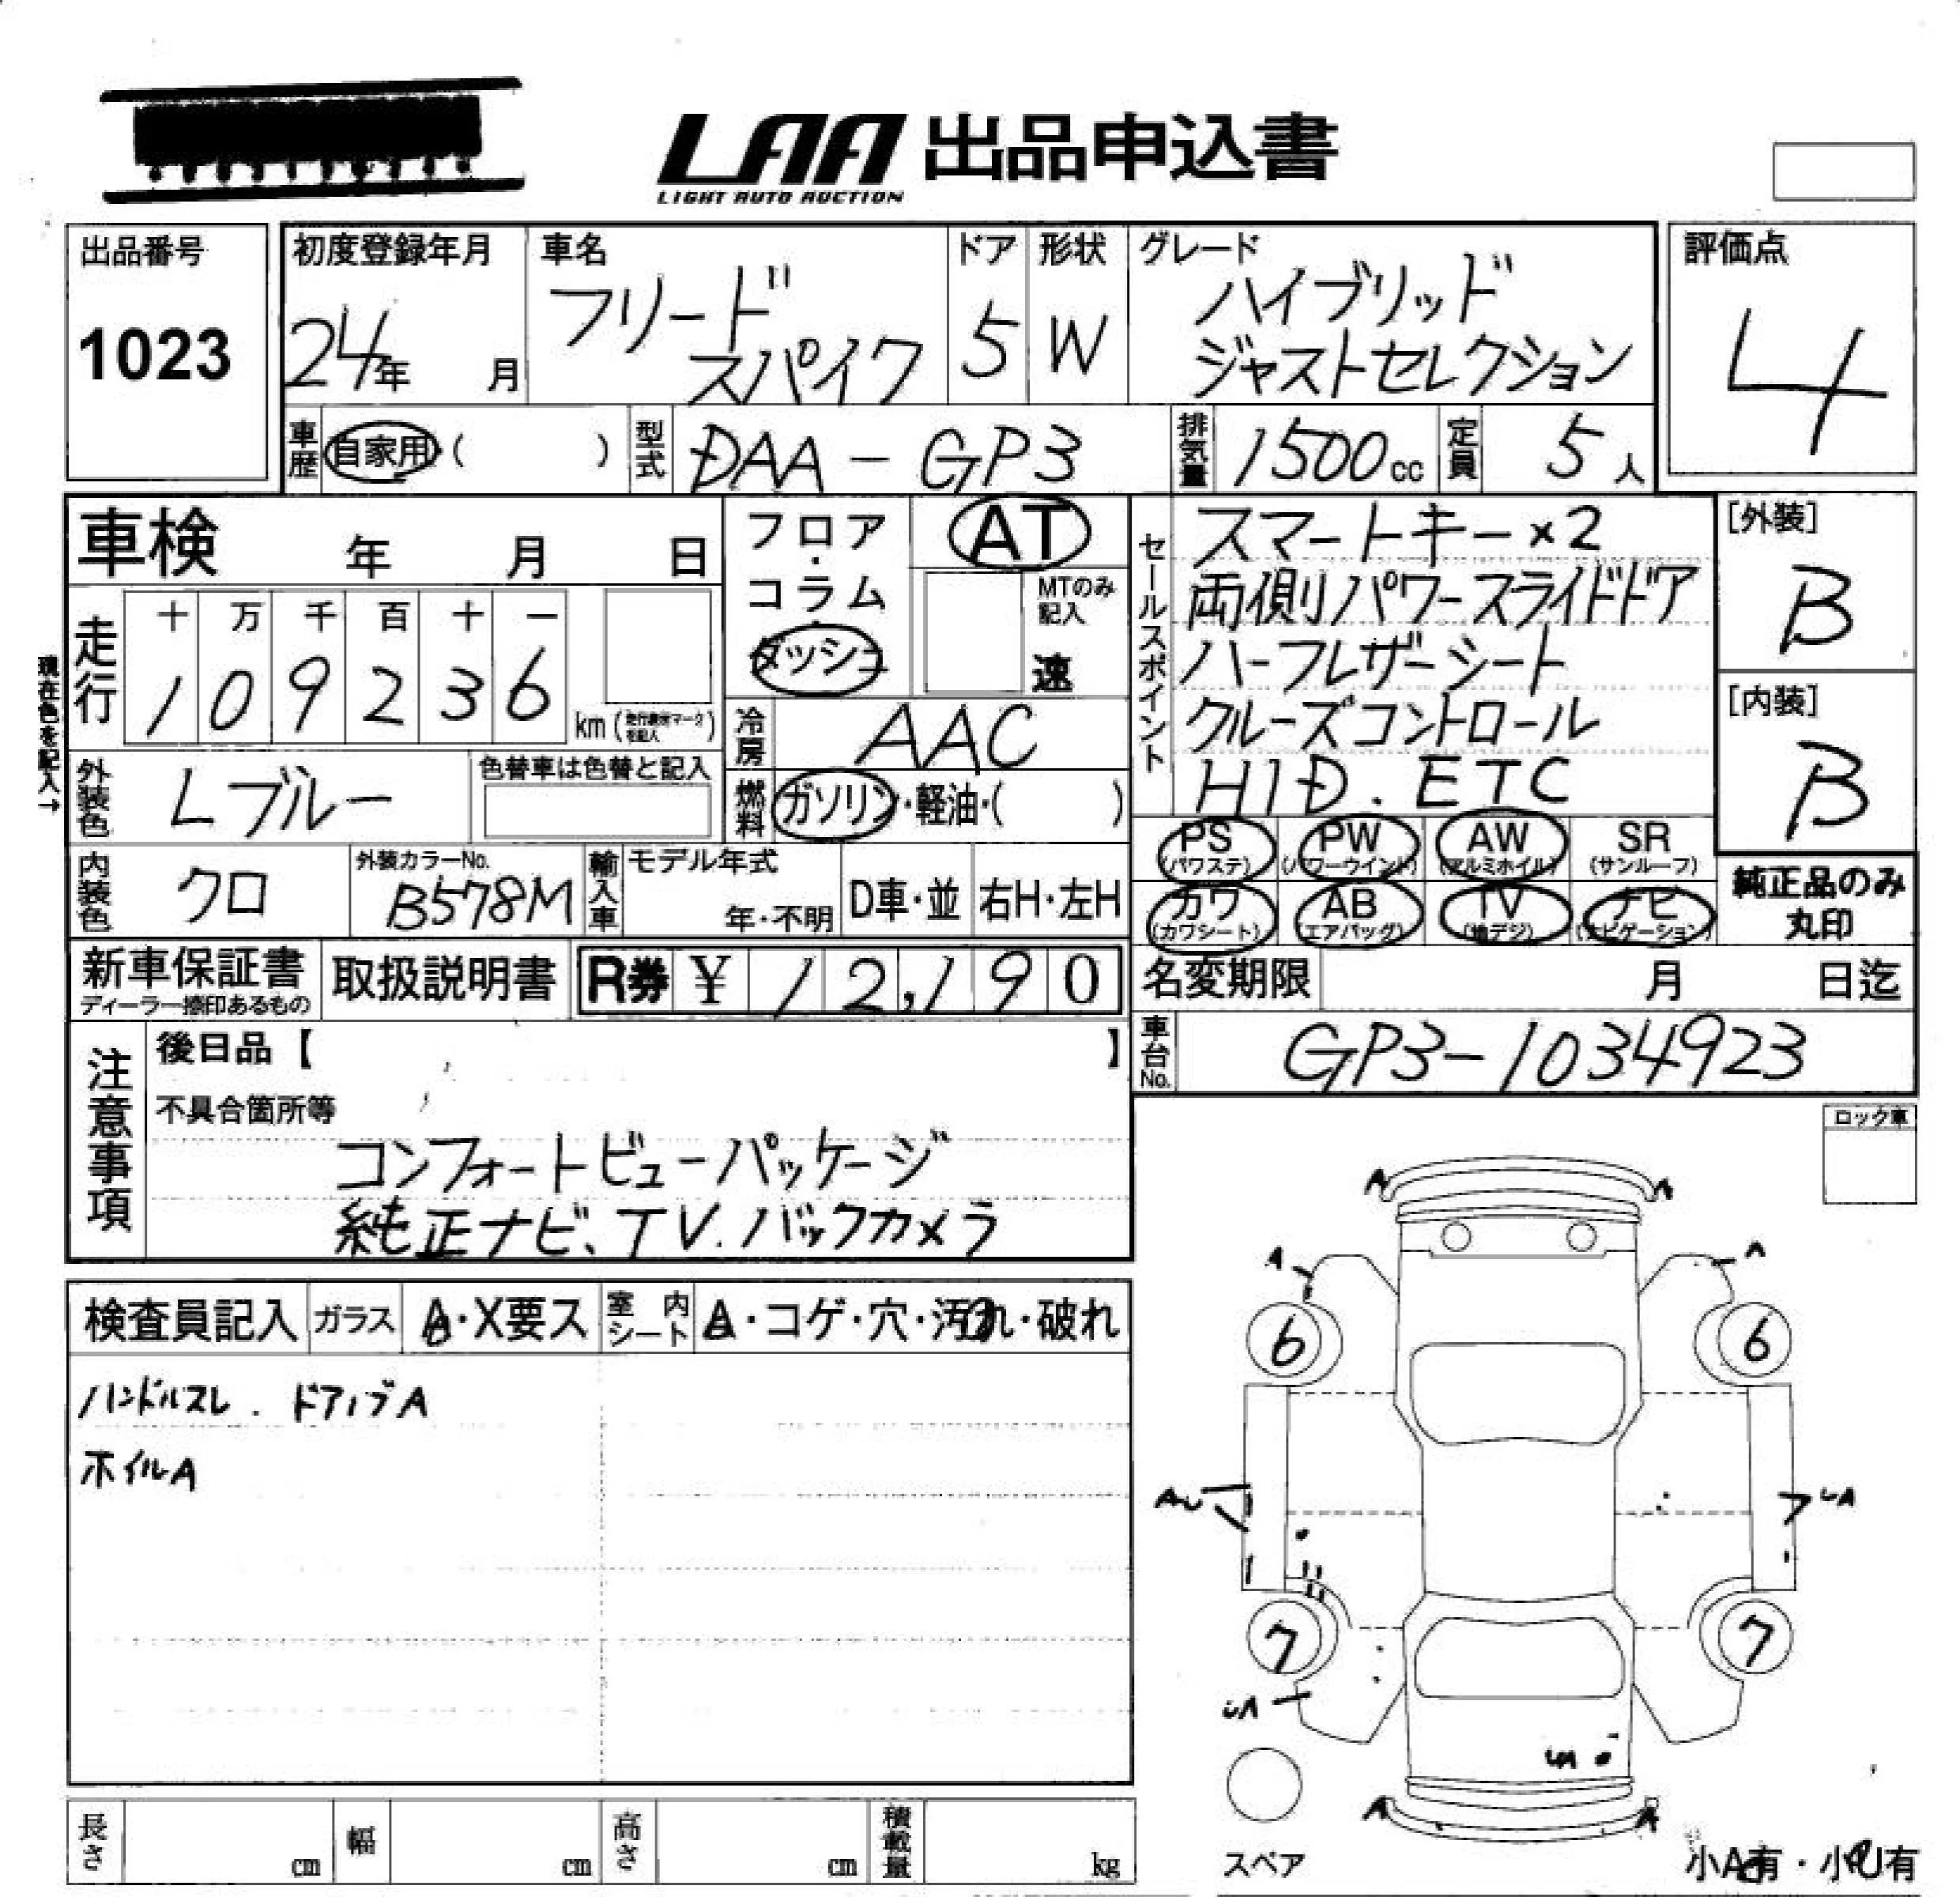 LAA 出品申込書
LIGHT AUTO AUCTION
出品番号
1023
初度登録年月
24年 月
車名
フリード
スパイク
ドア
5
形状
W
グレード
ハイブリッド
ジャストセレクション
評価点
4
車歴
自家用・( )
型式
DAA-GP3
排気量
1500cc
定員
5人
車検 年 月 日
フロア・コラム・ダッシュ
AT
MTのみ記入
速
走行
十 万 千 百 十 一
1 0 9 2 3 6
km
現在色を記入→
冷房
AAC
外装色
Lブルー
色替車は色替と記入
燃料
ガソリン・軽油・( )
内装色
クロ
外装カラーNo.
B578M
輸入車
モデル年式
年・不明
D車・並
右H・左H
セールスポイント
スマートキー×2
両側パワースライドドア
ハーフレザーシート
クルーズコントロール
HID.ETC
[外装]
B
[内装]
B
PS
(パワステ)
PW
(パワーウインド)
AW
(アルミホイル)
SR
(サンルーフ)
カワ
(カワシート)
AB
(エアバッグ)
TV
(地デジ)
ナビ
(ナビゲーション)
純正品のみ
丸印
新車保証書
ディーラー捺印あるもの
取扱説明書
R券 ¥ 12,190
名変期限 月 日迄
車台No.
GP3-1034923
注意事項
後日品【 】
不具合箇所等
コンフォートビューパッケージ
純正ナビ、TV.バックカメラ
ロック車
検査員記入
ガラス
A・X要ス
室内シート
A・コゲ・穴・汚れ・破れ
ハンドルスレ. ドアノブA
ホイルA
A A
A A
6 6
AU UA
7 7
UA
UA
A A
スペア
小A有・小U有
長さ cm
幅 cm
高さ cm
積載量 kg